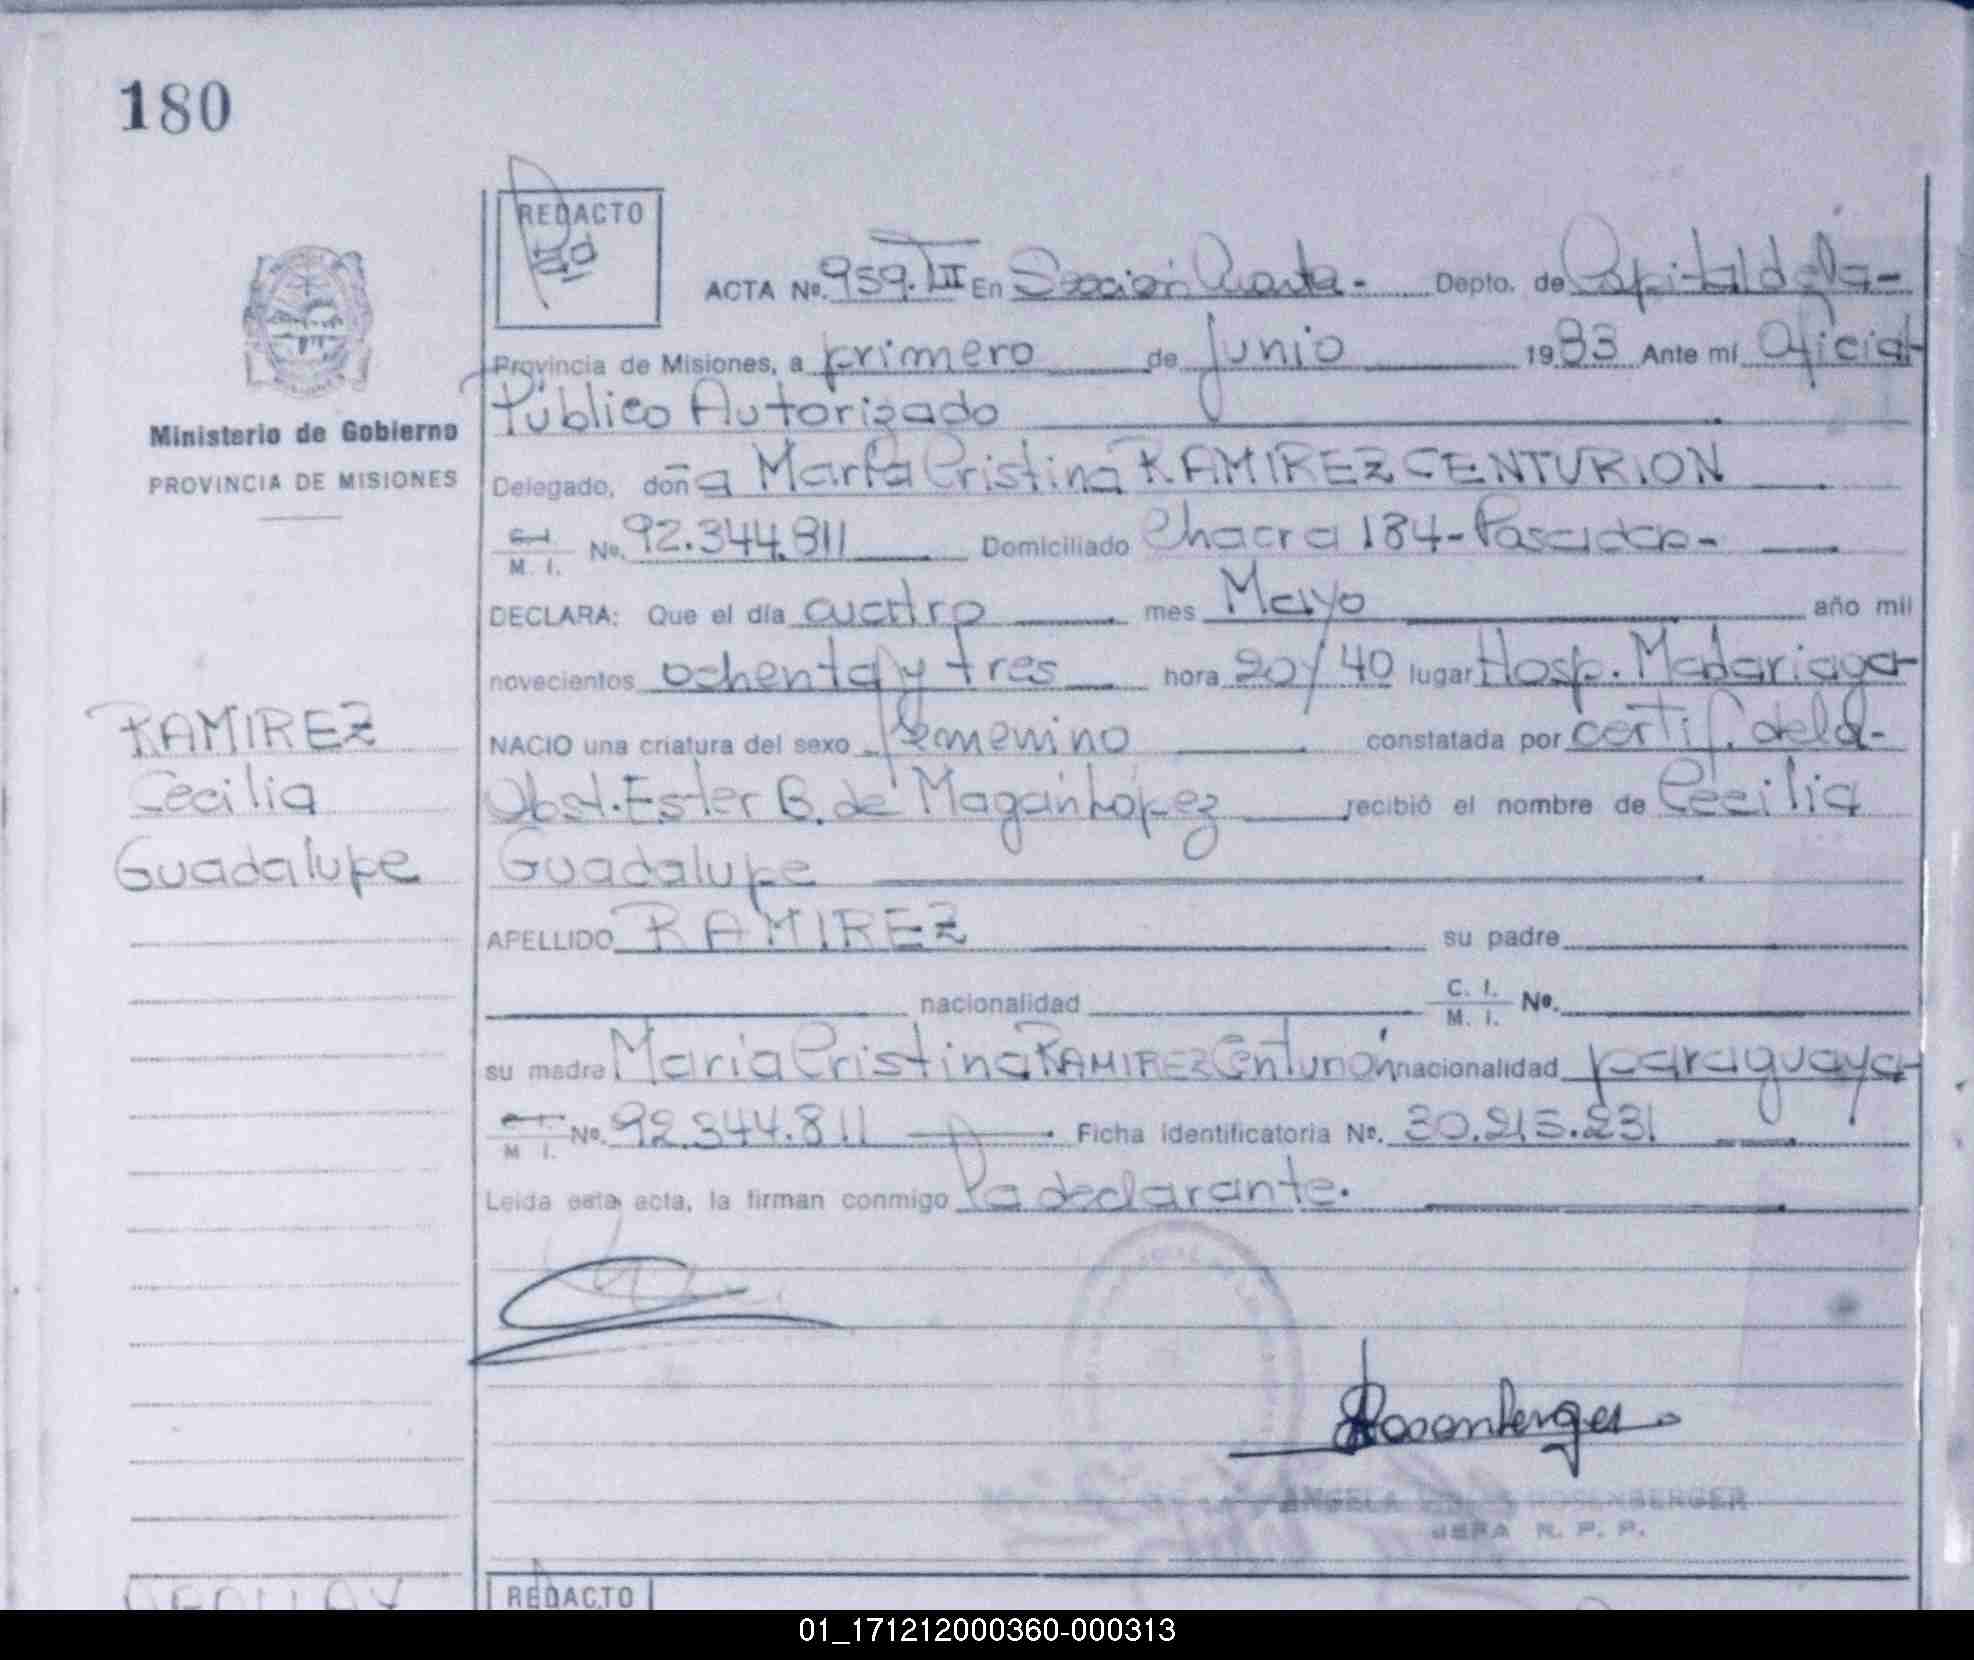 180
REDACTO
ACTA Nº. 959. TII En Sección Cuarta.- Depto. de Capital de la-
Provincia de Misiones, a primero de Junio 1983 Ante mí Oficial
Ministerio de Gobierno
Público Autorizado
PROVINCIA DE MISIONES
Delegado, doña María Cristina RAMIREZ CENTURION
C.I. M. I. No. 92.344.811 Domiciliado Chacra 184-Posadas-
DECLARA: Que el día cuatro mes Mayo año mil
novecientos ochenta y tres hora 20/40 lugar Hosp. Madariaga-
RAMIREZ
NACIO una criatura del sexo femenino constatada por certif. de la-
Cecilia
Obst. Ester B. de Magán López recibió el nombre de Cecilia
Guadalupe
Guadalupe
APELLIDO RAMIREZ su padre
nacionalidad C. I. M. I. Nº.
su madre María Cristina RAMIREZ Centurión nacionalidad paraguaya-
M. I. Nº. 92.344.811 Ficha identificatoria Nº. 30.215.231
Leida esta acta, la firman conmigo la declarante.
Rosenberger
ANGELA ROSENBERGER
JEFA R. P. P.
REDACTO
01_171212000360-000313